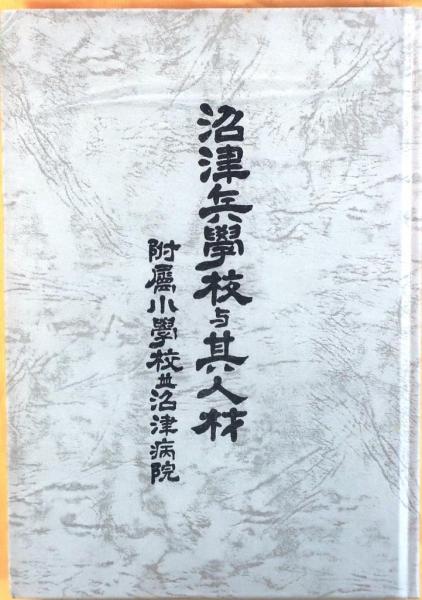 沼津兵學校与其人材
附屬小學校並沼津病院